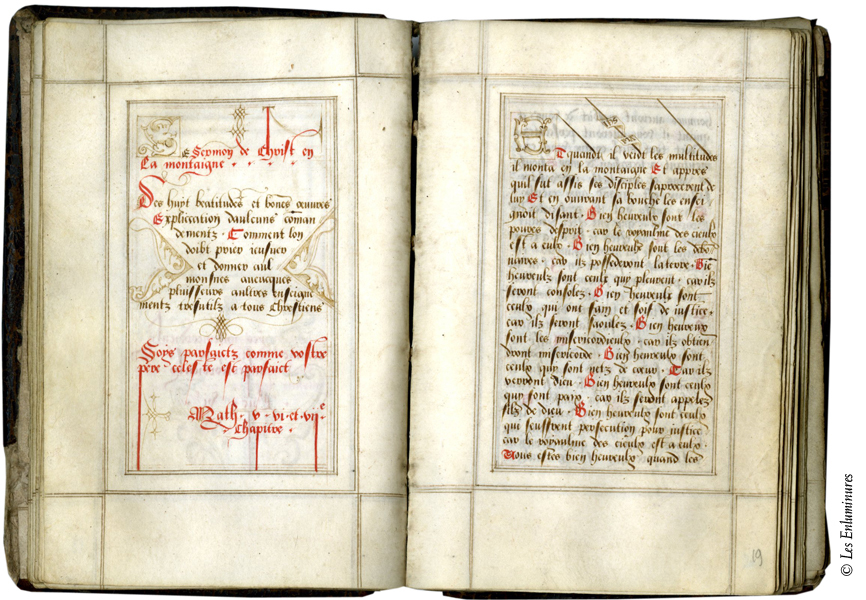 Le Sermon de Christ en
La montaigne
Des huyt beatitudes et bones œuvres
Expliccation daulcuns coman
dementz. Comment lon
doibt prier ieusner
et donner aul
mosnes avecques
plusieurs aultres enseigne
mentz tresutilz a tous Chrestiens
Soys parfaictz comme vostre
pere celeste est parfaict
Math. v. vi. et. vii.e
Chapitre.
Et quand il veidt les multitudes
il monta en la montaigne Et appres
quil fut assis ses disciples saprocerent de
luy Et en ouvrant sa bouche les ensei
gnoit disant. Bien heureulx sont les
pouvres desprit. car le royaulme des cieulx
est a eulx. Bien heureulx sont les debo
nnaires. car ilz possederont la terre. Bie
heureulx sont ceulx qui pleurent, car ilz
seront consolez. Bien heureulx sont
ceulx qui ont fain et soif de iustice.
car ilz seront saoulez. Bien heureux
sont les misericordieulx. car ilz obtien
dront misericorde. Bien heureulx sont
ceulx qui sont netz de cœur. Car ilz
verront dieu. Bien heureulx sont ceulx
qui sont paix. car ilz seront appelez
filz de dieu. Bien heureulx sont ceulx
qui seuffrent persecution pour iustice
car le royaulme des cieulx est a eulx.
Vous estes bien heureulx quand les
19
© Les Enluminures